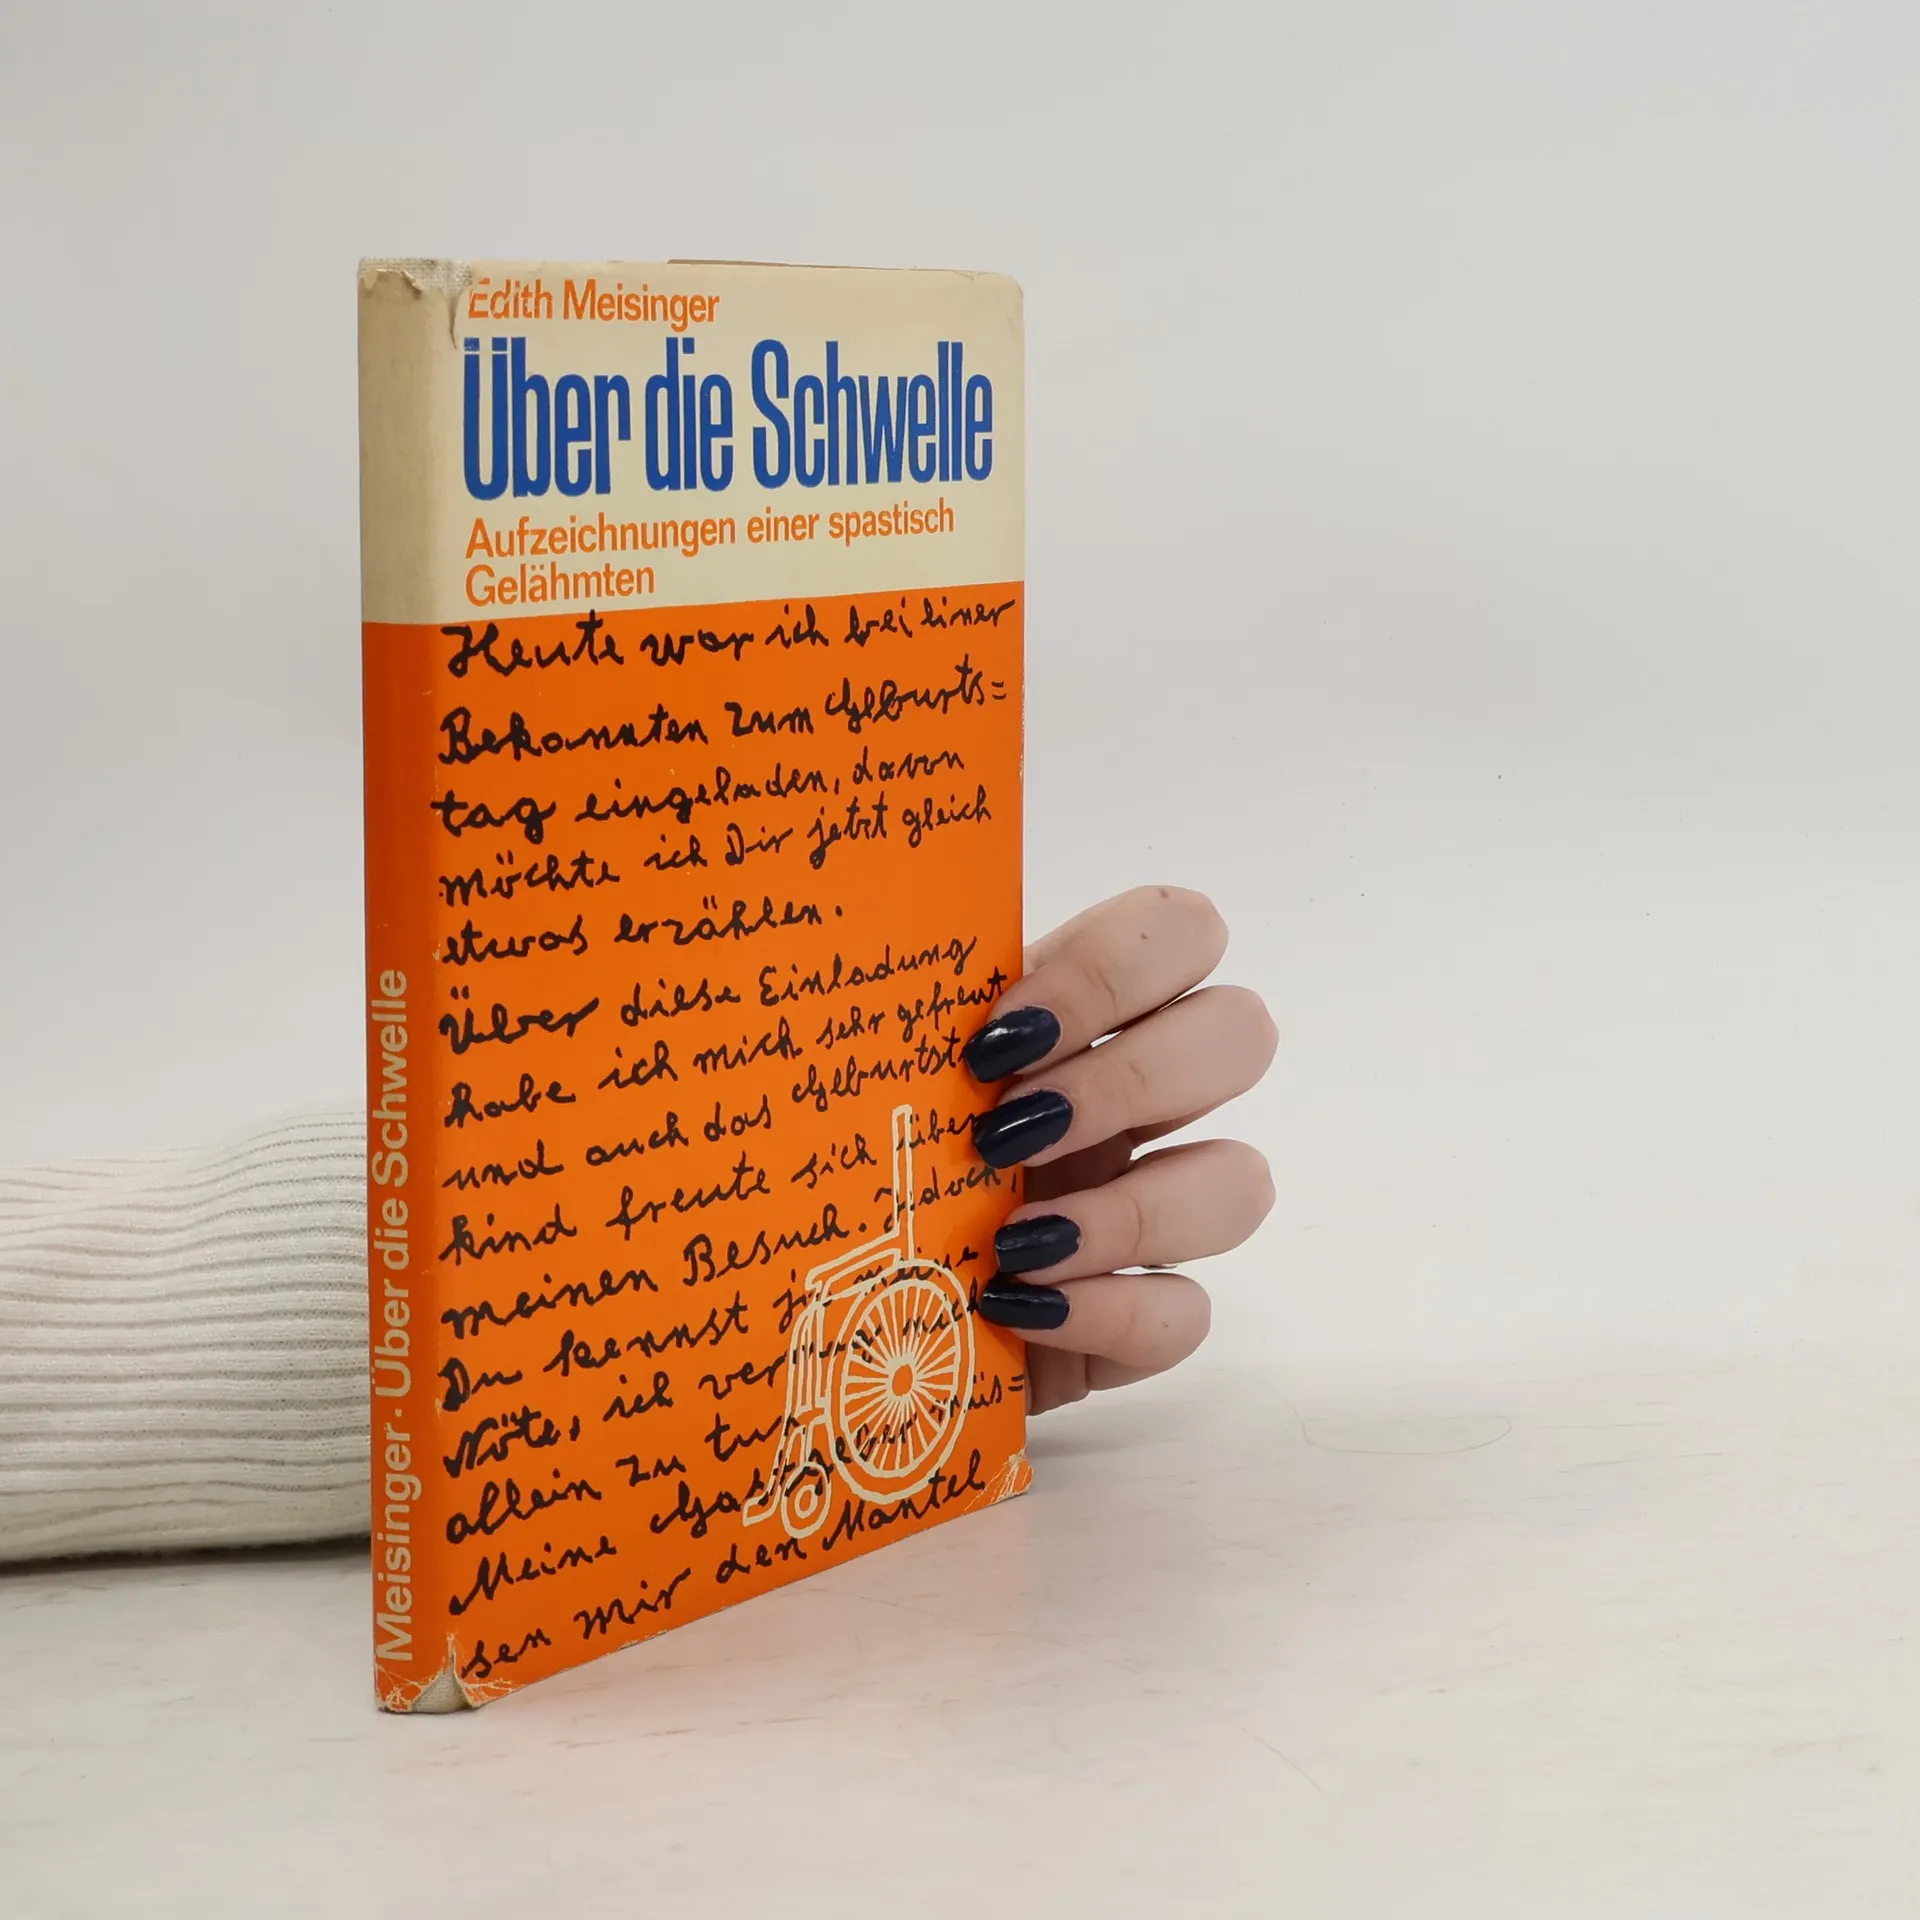 Edith Meisinger
Über die Schwelle
Aufzeichnungen einer spastisch
Gelähmten
Heute war ich bei einer
Bekannten zum Geburts=
tag eingeladen, davon
möchte ich Dir jetzt gleich
etwas erzählen.
Über diese Einladung
habe ich mich sehr gefreut
und auch das Geburtst
kind freute sich über
meinen Besuch. Jedoch,
Du kennst ja meine
Nöte, ich vermag mich
allein zu tun
Meine Gastgeber müs=
sen mir den Mantel
Meisinger · Über die Schwelle